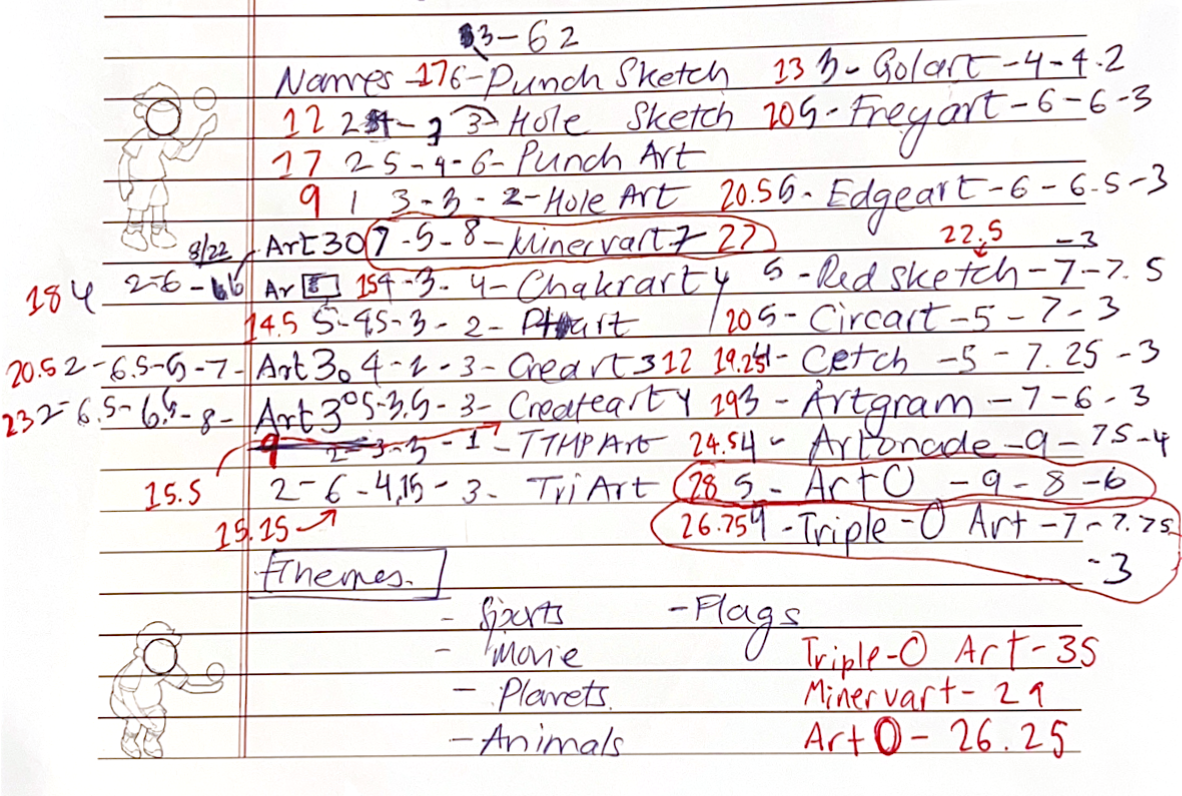 3-62
Names -176-Punch Sketch 13 3- Golart-4-4.2
12 2 3- Hole Sketch 20 5- Freyart-6-6-3
17 2 5-4-6- Punch Art
9 1 3-3-2-Hole Art 20.5 6- Edgeart-6-6.5-3
8/22 Art30 7-5-8-Minervart 7 27 22.5 -3
18 4 2-6- Ar 15 4-3-4-Chakrart 4 5-Redsketch-7-7.5
14.5 5-4.5-3-2- art 20 5- Circart-5-7-3
20.5 2-6.5-5-7- Art3. 4-2-3- Creart 3 12 19.25 4- Cetch -5-7.25-3
23 2-6.5-6.5-8- Art3° 5-3.5-3- Createart 4 19 3- Artgram-7-6-3
9 2-3-3-1-TTHP Art 24.5 4- Artonade-9-7.5-4
15.5 2-6-4.15-3- TriArt 28 5- ArtO -9-8-6
15.15 26.75 4-Triple-O Art-7-7.75
-3
Themes.
- Sports -Flags
- Movie Triple-O Art-35
- Planets. Minervart-29
-Animals ArtO-26.25